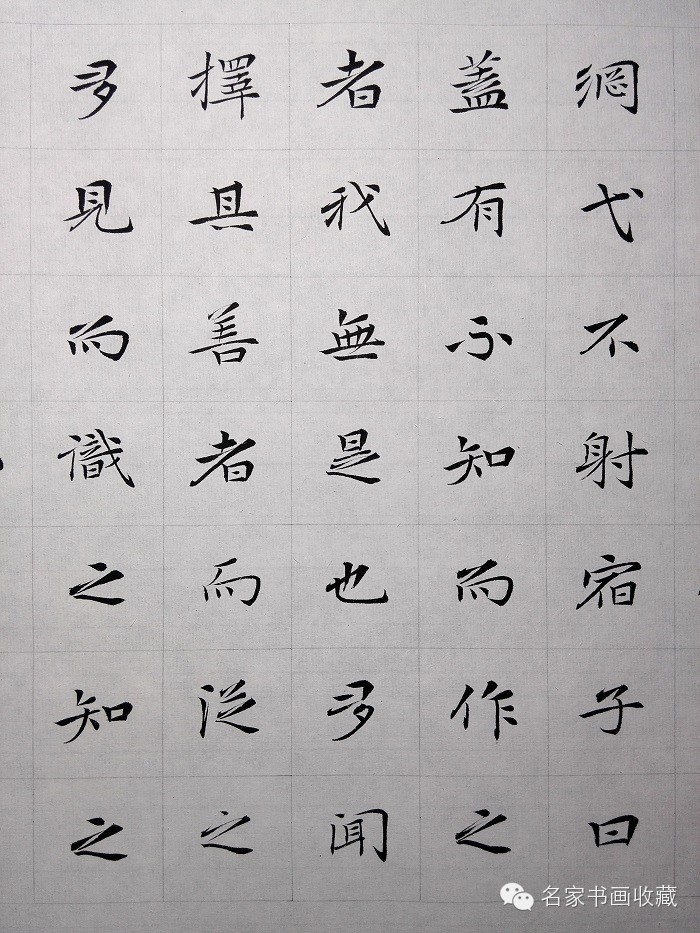 綱弋不射宿子曰
蓋有不知而作之
者我無是也多闻
擇其善者而從之
多見而識之知之
名家书画收藏